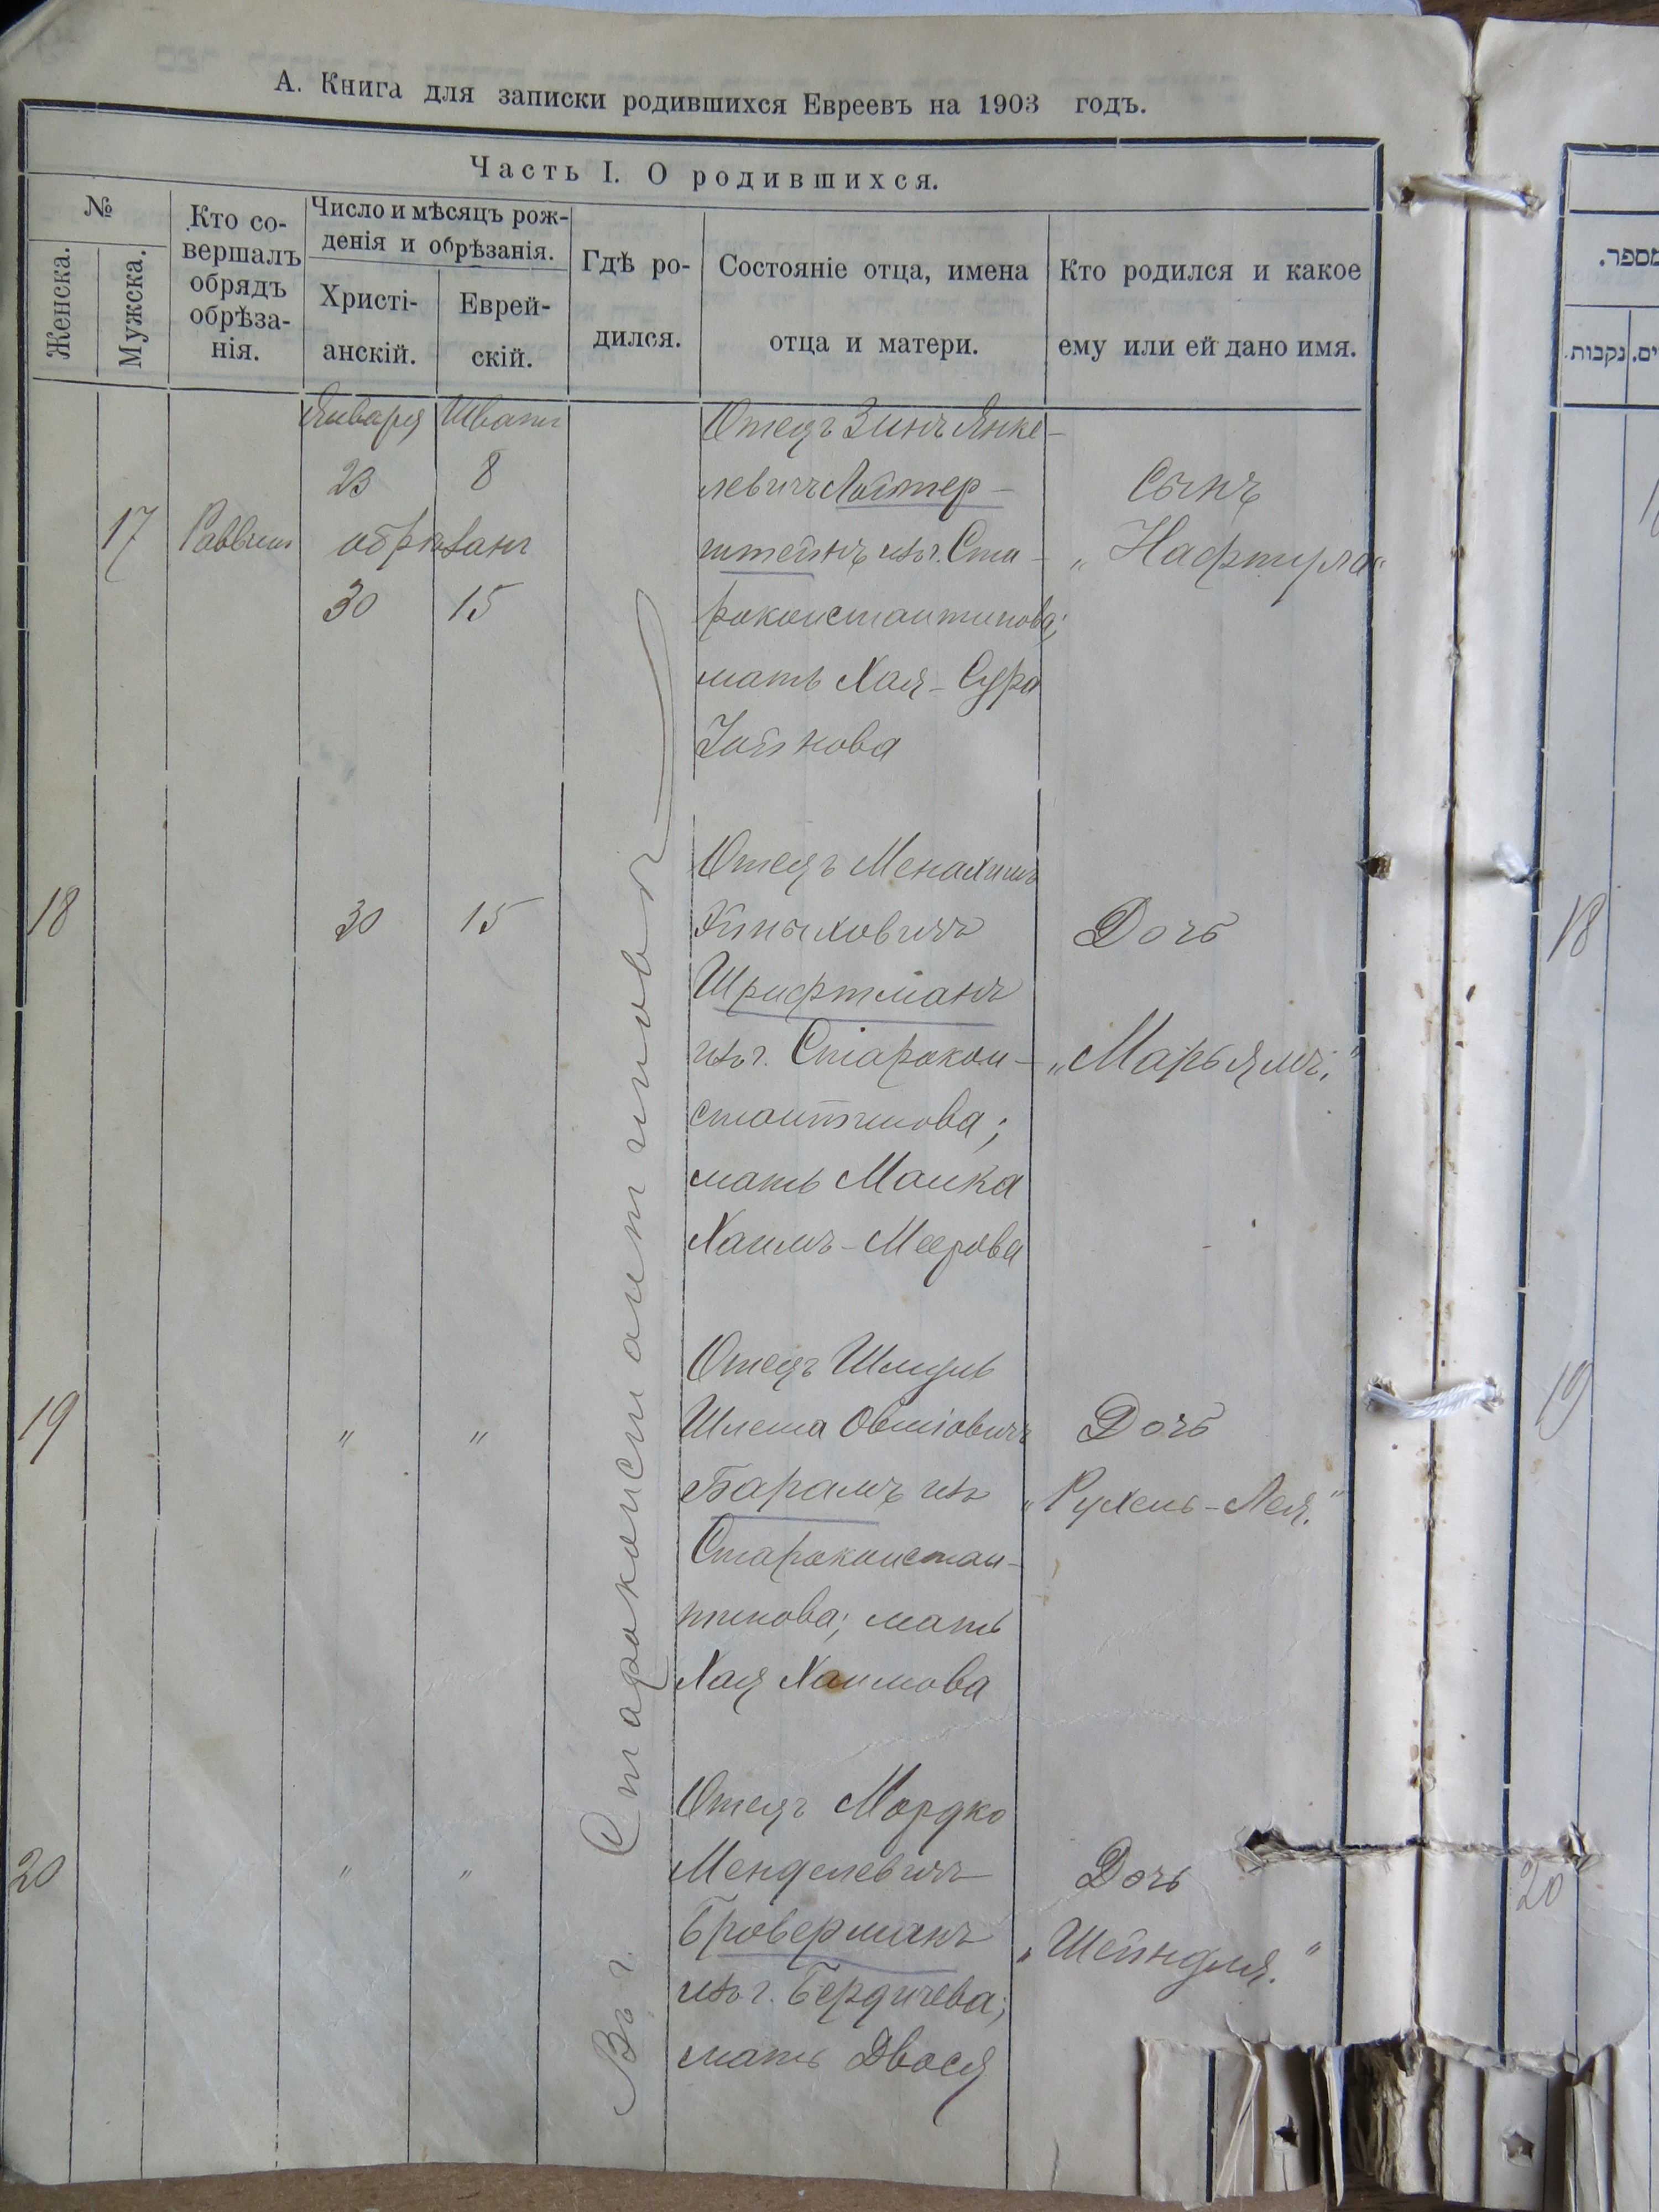 А. Книга для записки родившихся Евреевъ на 1903 годъ.
Часть I. О родившихся.
№
Женска.
Мужска.
Кто со-
вершалъ
обрядъ
обрѣза-
нія.
Число и мѣсяцъ рож-
денія и обрѣзанія.
Христі-
анскій.
Еврей-
скій.
Гдѣ ро-
дился.
Состояніе отца, имена
отца и матери.
Кто родился и какое
ему или ей дано имя.
17
Раввинъ
Января Шватъ
23 8
обрѣзанъ
30 15
Отецъ Зинъ Янке-
левичъ Лойтер-
штейнъ изъ г. Ста-
роконстантинова;
мать Хая-Сура
Сынъ
„Нафтула“
Въ г. Староконстантиновѣ
18
30 15
Отецъ Менахимъ
Шрифтманъ
изъ г. Старокон-
стантинова;
мать Малка
Хаимъ-Меерова
Дочь
„Марьямъ."
19
" "
Отецъ Шмуль
Шлема Овшіовичъ
Барамъ изъ
Староконстан-
тинова; мать
Хая Хаимова
Дочь
„Рухель-Лея."
20
" "
Отецъ Мордко
Менделевичъ
Броверманъ
изъ г. Бердичева;
мать Двося
Дочь
„Шейндля."
מספר.
נקבות.
18
19
20